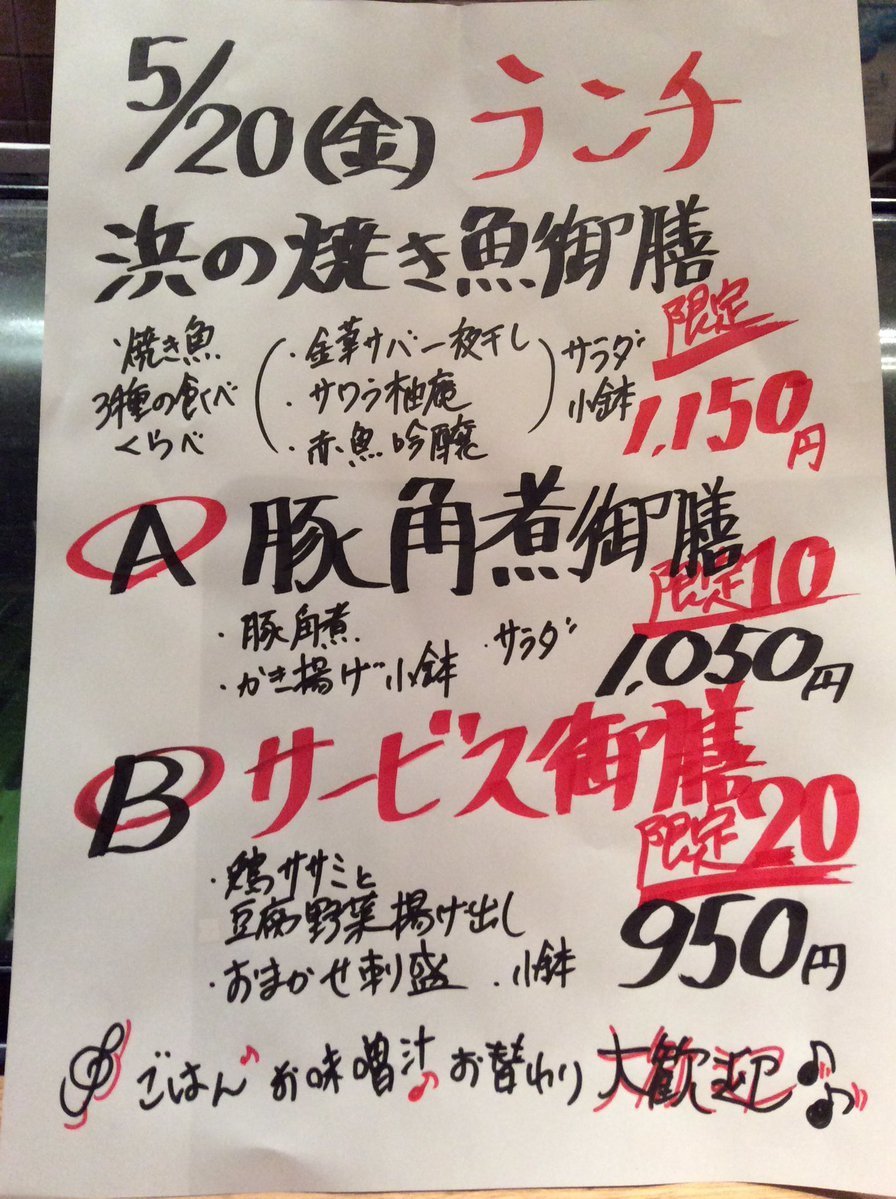 5/20(金) ランチ
浜の焼き魚御膳
限定
焼き魚
3種の食べ
くらべ
・金華サバ一夜干し
・サワラ柚庵
・赤魚吟醸
サラダ
小鉢
1,150円
A 豚角煮御膳
限定10
・豚角煮 ・サラダ
・かき揚げ 小鉢
1,050円
B サービス御膳
限定20
・鶏ササミと
豆腐野菜揚げ出し
・おまかせ刺盛 ・小鉢
950円
ごはん♪お味噌汁♪お替わり大歓迎♪♪